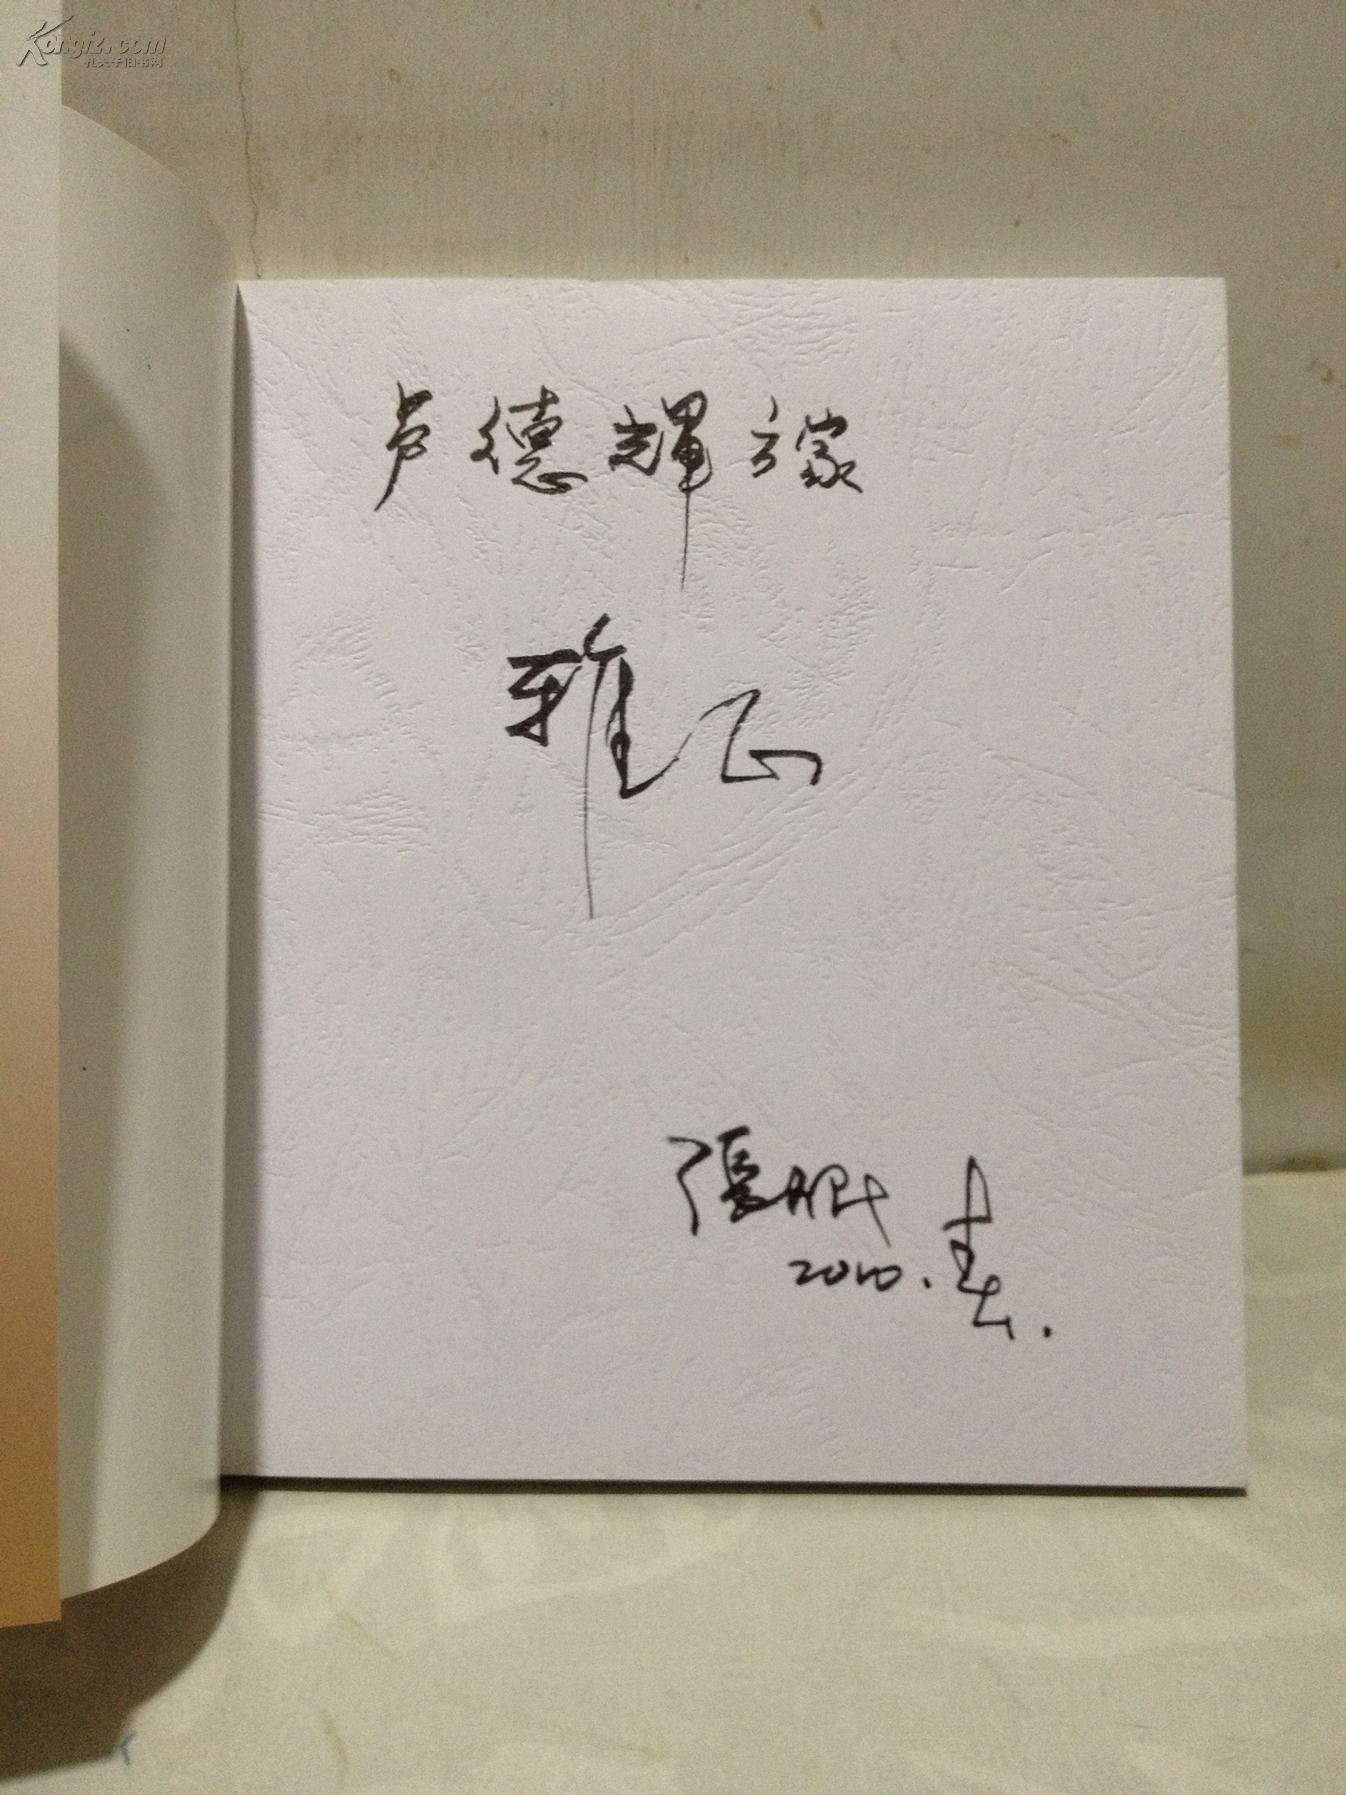 Kongfz.com
孔夫子旧书网
卢德輝方家
雅正
張
2010.春.